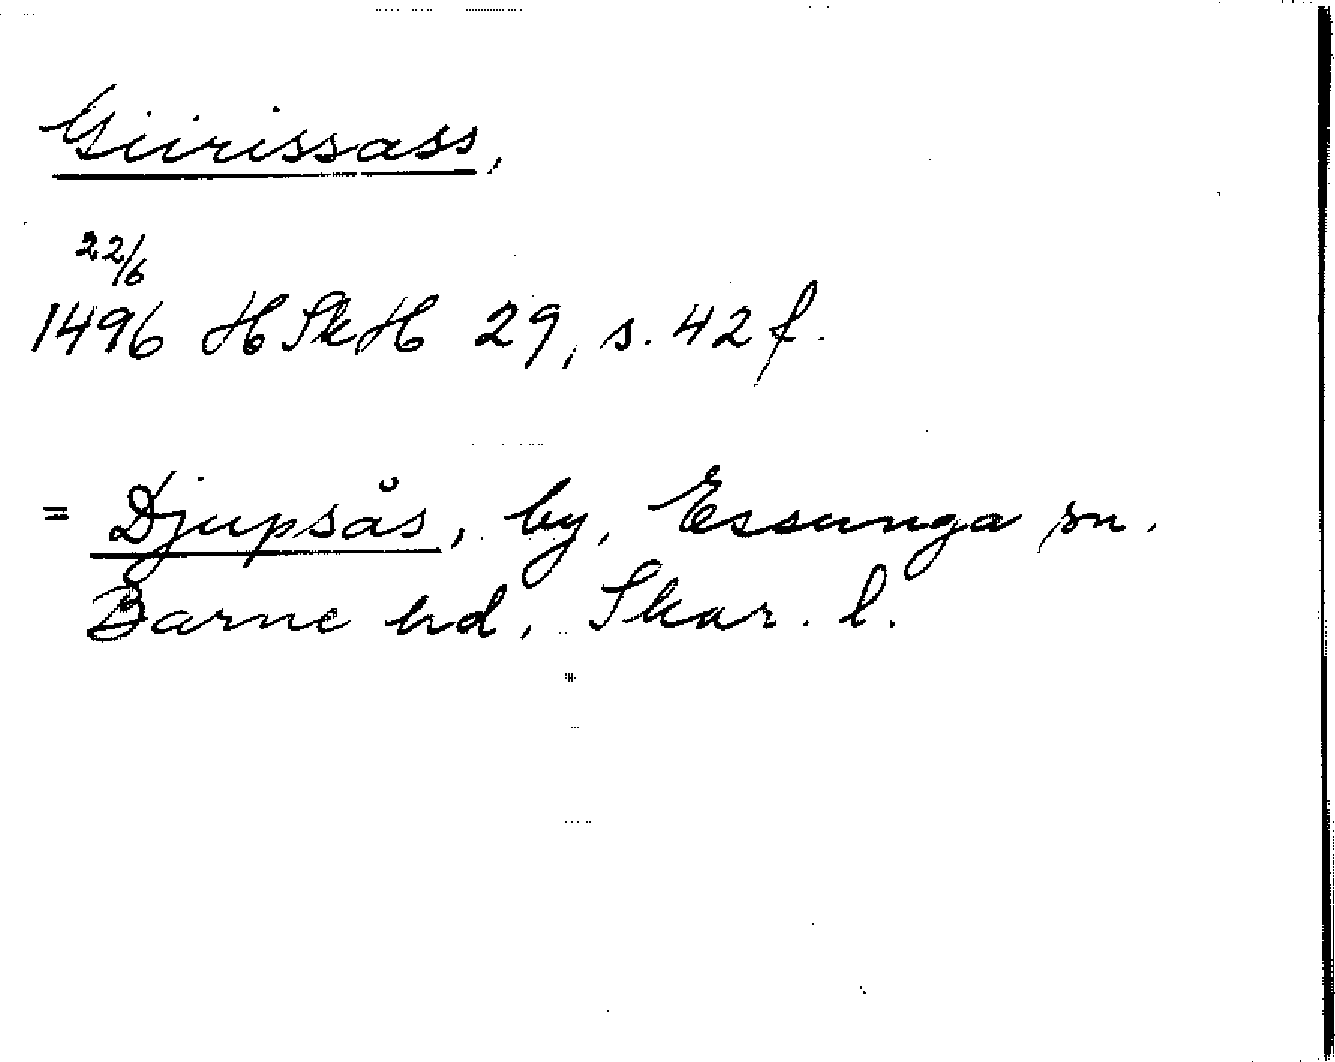 Giirissass,
22/6
1496 HSkH 29, s. 42 f.
= Djupsås, by, Essunga sn.
Barne hd, Skar. l.